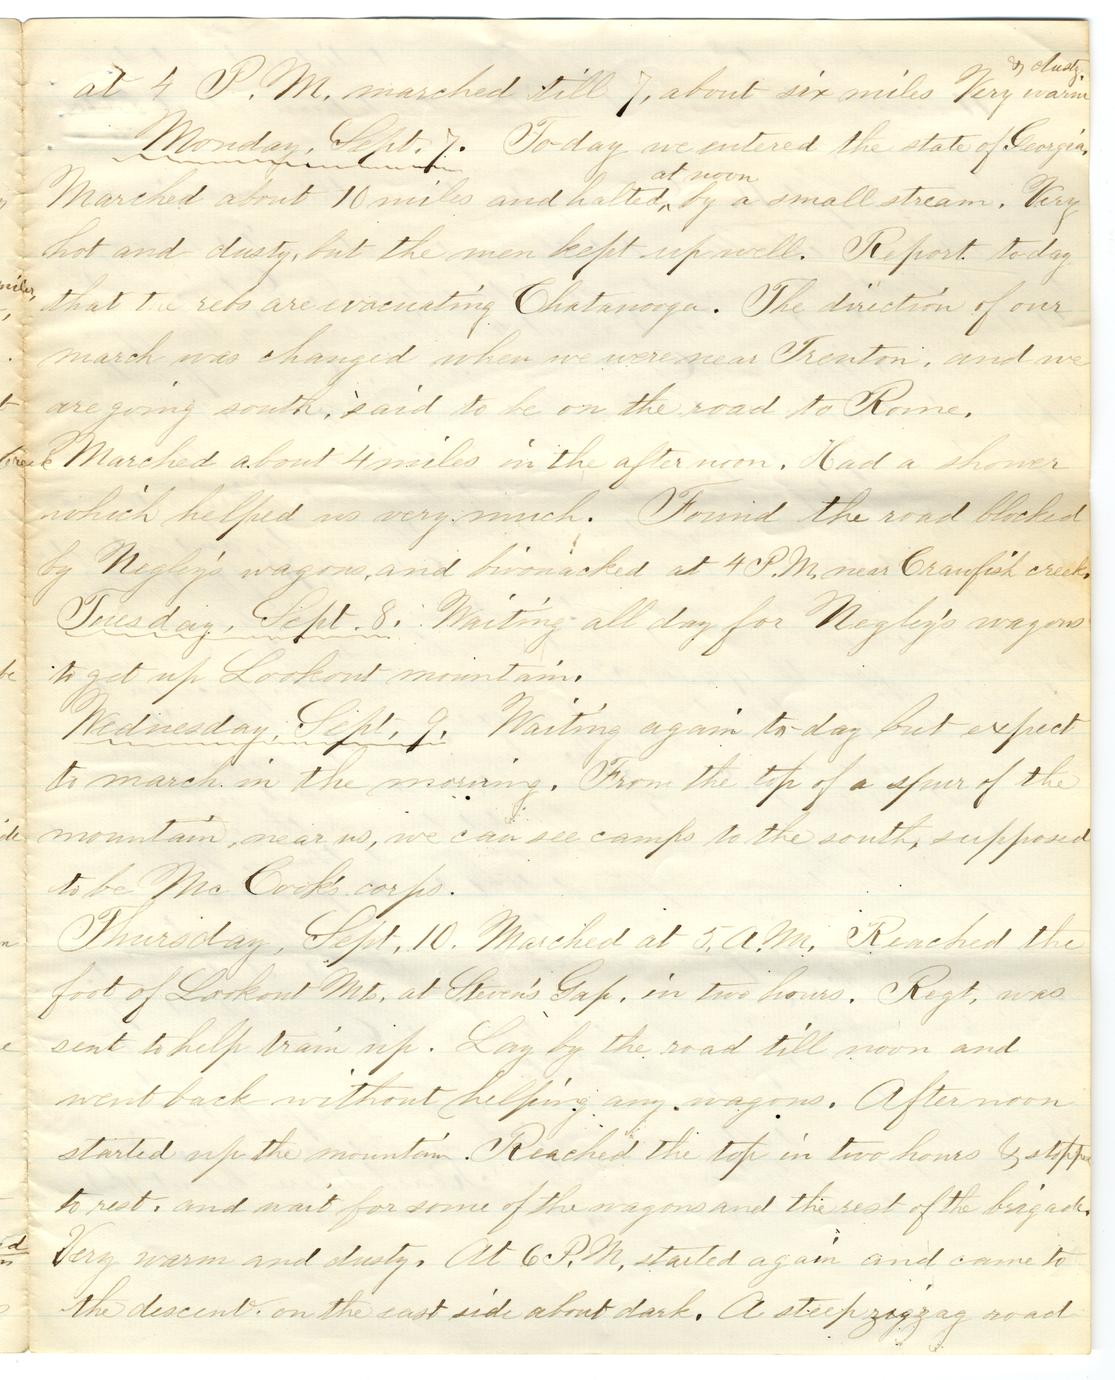 at 4 P.M. marched till 7, about six miles Very warm & dusty.
Monday, Sept. 7. To-day we entered the state of Georgia.
Marched about 10 miles and halted, at noon by a small stream. Very
hot and dusty, but the men kept up well. Report to day
that the rebs are evacuating Chatanooga. The direction of our
march was changed when we were near Trenton, and we
are going south, said to be on the road to Rome.
Marched about 4 miles in the after noon. Had a shower
which helped us very much. Found the road blocked
by Negley's wagons, and bivouacked at 4 P.M. near Crawfish creek.
Tuesday, Sept. 8. Waiting all day for Negley's wagons
to get up Lookout mountain.
Wednesday, Sept. 9. Waiting again to-day but expect
to march in the morning. From the top of a spur of the
mountain, near us, we can see camps to the south, supposed
to be Mc Cook's corps.
Thursday, Sept, 10. Marched at 5, A.M. Reached the
foot of Lookout Mt. at Steven's Gap, in two hours. Regt. was
sent to help train up. Lay by the road till noon and
went back without helping any wagons. After noon
started up the mountain. Reached the top in two hours &
to rest, and wait for some of the wagons and the rest of the brigade.
Very warm and dusty. At 6 P.M. started again and came to
the descent on the east side about dark. A steep zigzag road